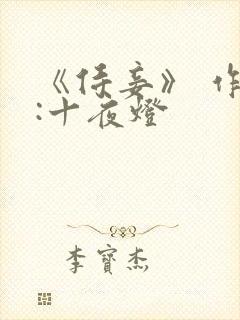 《侍妾》 作
:十夜燈
李寶杰